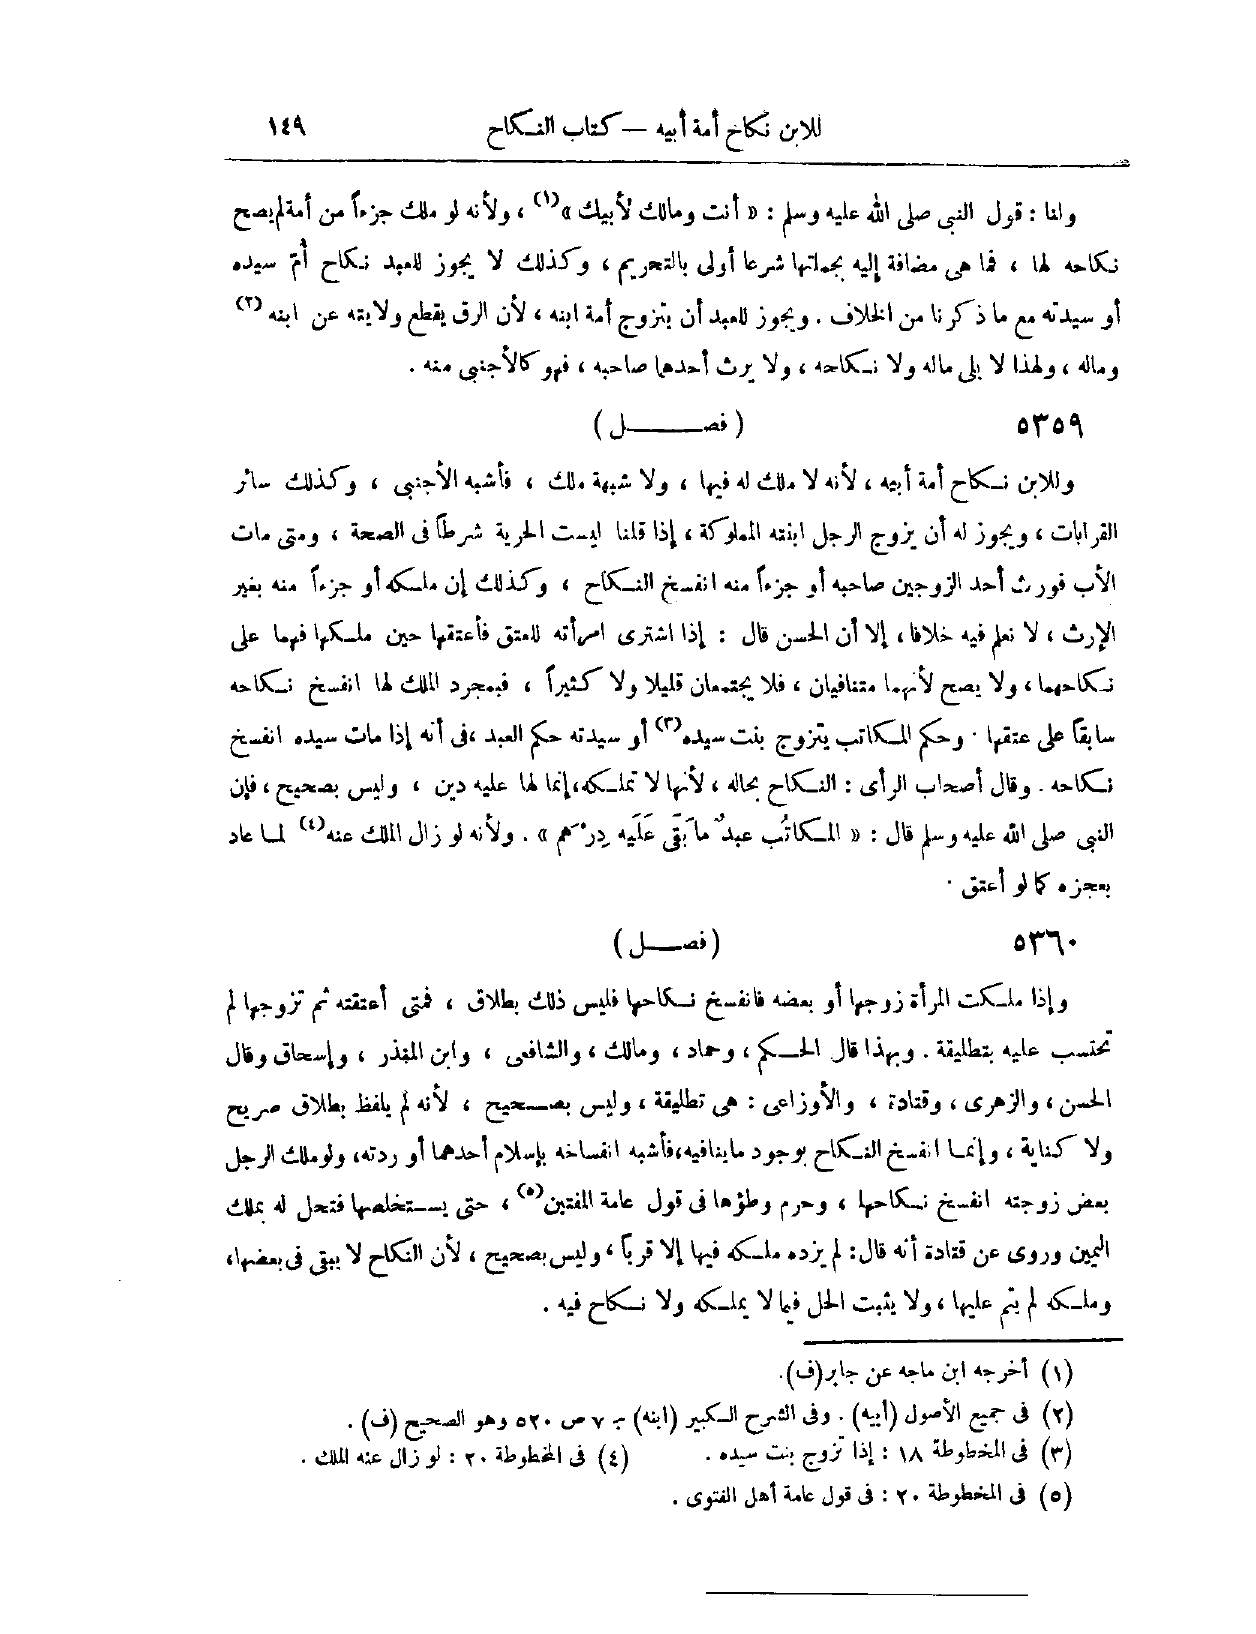 للابن نكاح أمة أبيه — كتاب النكاح ١٤٩
ولنا : قول النبى صلى الله عليه وسلم : « أنت ومالك لأبيك »(١) ، ولأنه لو ملك جزءاً من أمة لم يصح
نكاحه لها ، فما هى مضافة إليه بجملتها شرعا أولى بالتحريم ، وكذلك لا يجوز للعبد نكاح أم سيده
أو سيدته مع ما ذكرنا من الخلاف . ويجوز للعبد أن يتزوج أمة ابنه ، لأن الرق يقطع ولايته عن ابنه (٢)
وماله ، ولهذا لا يلى ماله ولا نكاحه ، ولا يرث أحدهما صاحبه ، فهو كالأجنبى منه .
٥٣٥٩ ( فصل )
وللابن نكاح أمة أبيه ، لأنه لا ملك له فيها ، ولا شبهة ملك ، فأشبه الأجنبى ، وكذلك سائر
القرابات ، ويجوز له أن يزوج الرجل ابنته المملوكة ، إذا قلنا ليست الحرية شرطاً فى الصحة ، ومتى مات
الأب فورث أحد الزوجين صاحبه أو جزءاً منه انفسخ النكاح ، وكذلك إن ملكه أو جزءاً منه بغير
الإرث ، لا نعلم فيه خلافا ، إلا أن الحسن قال : إذا اشترى امرأته للعتق فأعتقها حين ملكها فهما على
نكاحهما ، ولا يصح لأنهما متنافيان ، فلا يجتمعان قليلا ولا كثيراً ، فبمجرد الملك لها انفسخ نكاحه
سابقاً على عتقها . وحكم المكاتب يتزوج بنت سيده(٣) أو سيدته حكم العبد ،فى أنه إذا مات سيده انفسخ
نكاحه . وقال أصحاب الرأى : النكاح بحاله ، لأنها لا تملكه،إنما لها عليه دين ، وليس بصحيح ، فإن
النبى صلى الله عليه وسلم قال : « المكاتُب عبدٌ ما بَقَى عَلَيه دِرْهَم » . ولأنه لو زال الملك عنه(٤) لما عاد
بعجزه كما لو أعتق .
٥٣٦٠ ( فصل )
وإذا ملكت المرأة زوجها أو بعضه فانفسخ نكاحها فليس ذلك بطلاق ، فمتى أعتقته ثم تزوجها لم
تحتسب عليه بتطليقة . وبهذا قال الحكم ، وحماد ، ومالك ، والشافعى ، وابن المنذر ، وإسحاق وقال
الحسن ، والزهرى ، وقتادة ، والأوزاعى : هى تطليقة ، وليس بصحيح ، لأنه لم يلفظ بطلاق صريح
ولا كناية ، وإنما انفسخ النكاح بوجود ماينافيه،فأشبه انفساخه بإسلام أحدهما أو ردته، ولو ملك الرجل
بعض زوجته انفسخ نكاحها ، وحرم وطؤها فى قول عامة المفتين(٥) ، حتى يستخلصها فتحل له بملك
اليمين وروى عن قتادة أنه قال: لم يزده ملكه فيها إلا قرباً ، وليس بصحيح ، لأن النكاح لا يبقى فى بعضها،
وملكه لم يتم عليها ، ولا يثبت الحل فيما لا يملكه ولا نكاح فيه .
(١) أخرجه ابن ماجه عن جابر(ف).
(٢) فى جميع الأصول (أبيه) . وفى الشرح الكبير (ابنه) ج ٧ ص ٥٢٠ وهو الصحيح (ف) .
(٣) فى المخطوطة ١٨ : إذا تزوج بنت سيده . (٤) فى المخطوطة ٢٠ : لو زال عنه الملك .
(٥) فى المخطوطة ٢٠ : فى قول عامة أهل الفتوى .